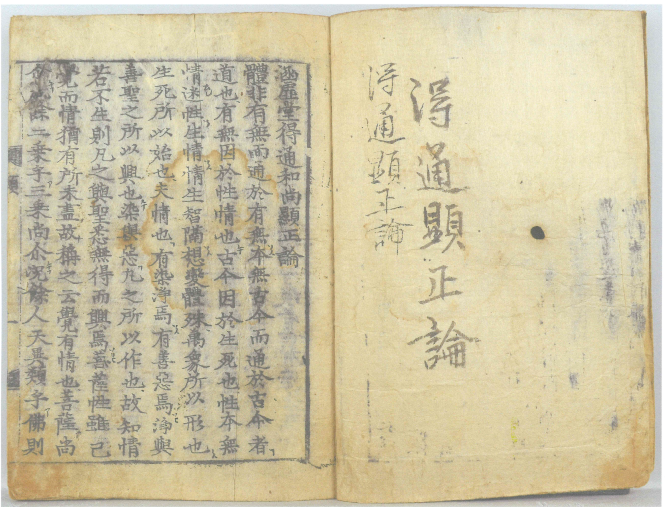 淂通顯正論
淂通顯正論
涵虛堂得通和尚顯正論
體非有無而通於有無本無古今而通於古今者
道也有無因於性情也古今因於生死也性本無
情迷性生情情生智隔想變體殊萬象所以形也
生死所以始也夫情也有染淨焉有善惡焉淨與
善聖之所以興也染與惡凡之所以作也故知情
若不生則凡之與聖悉無得而興焉菩薩性雖已
覺而情猶有所未盡故稱之云覺有情也菩薩尚
尒餘二乘乎三乘尚尒況餘人天異類乎佛則